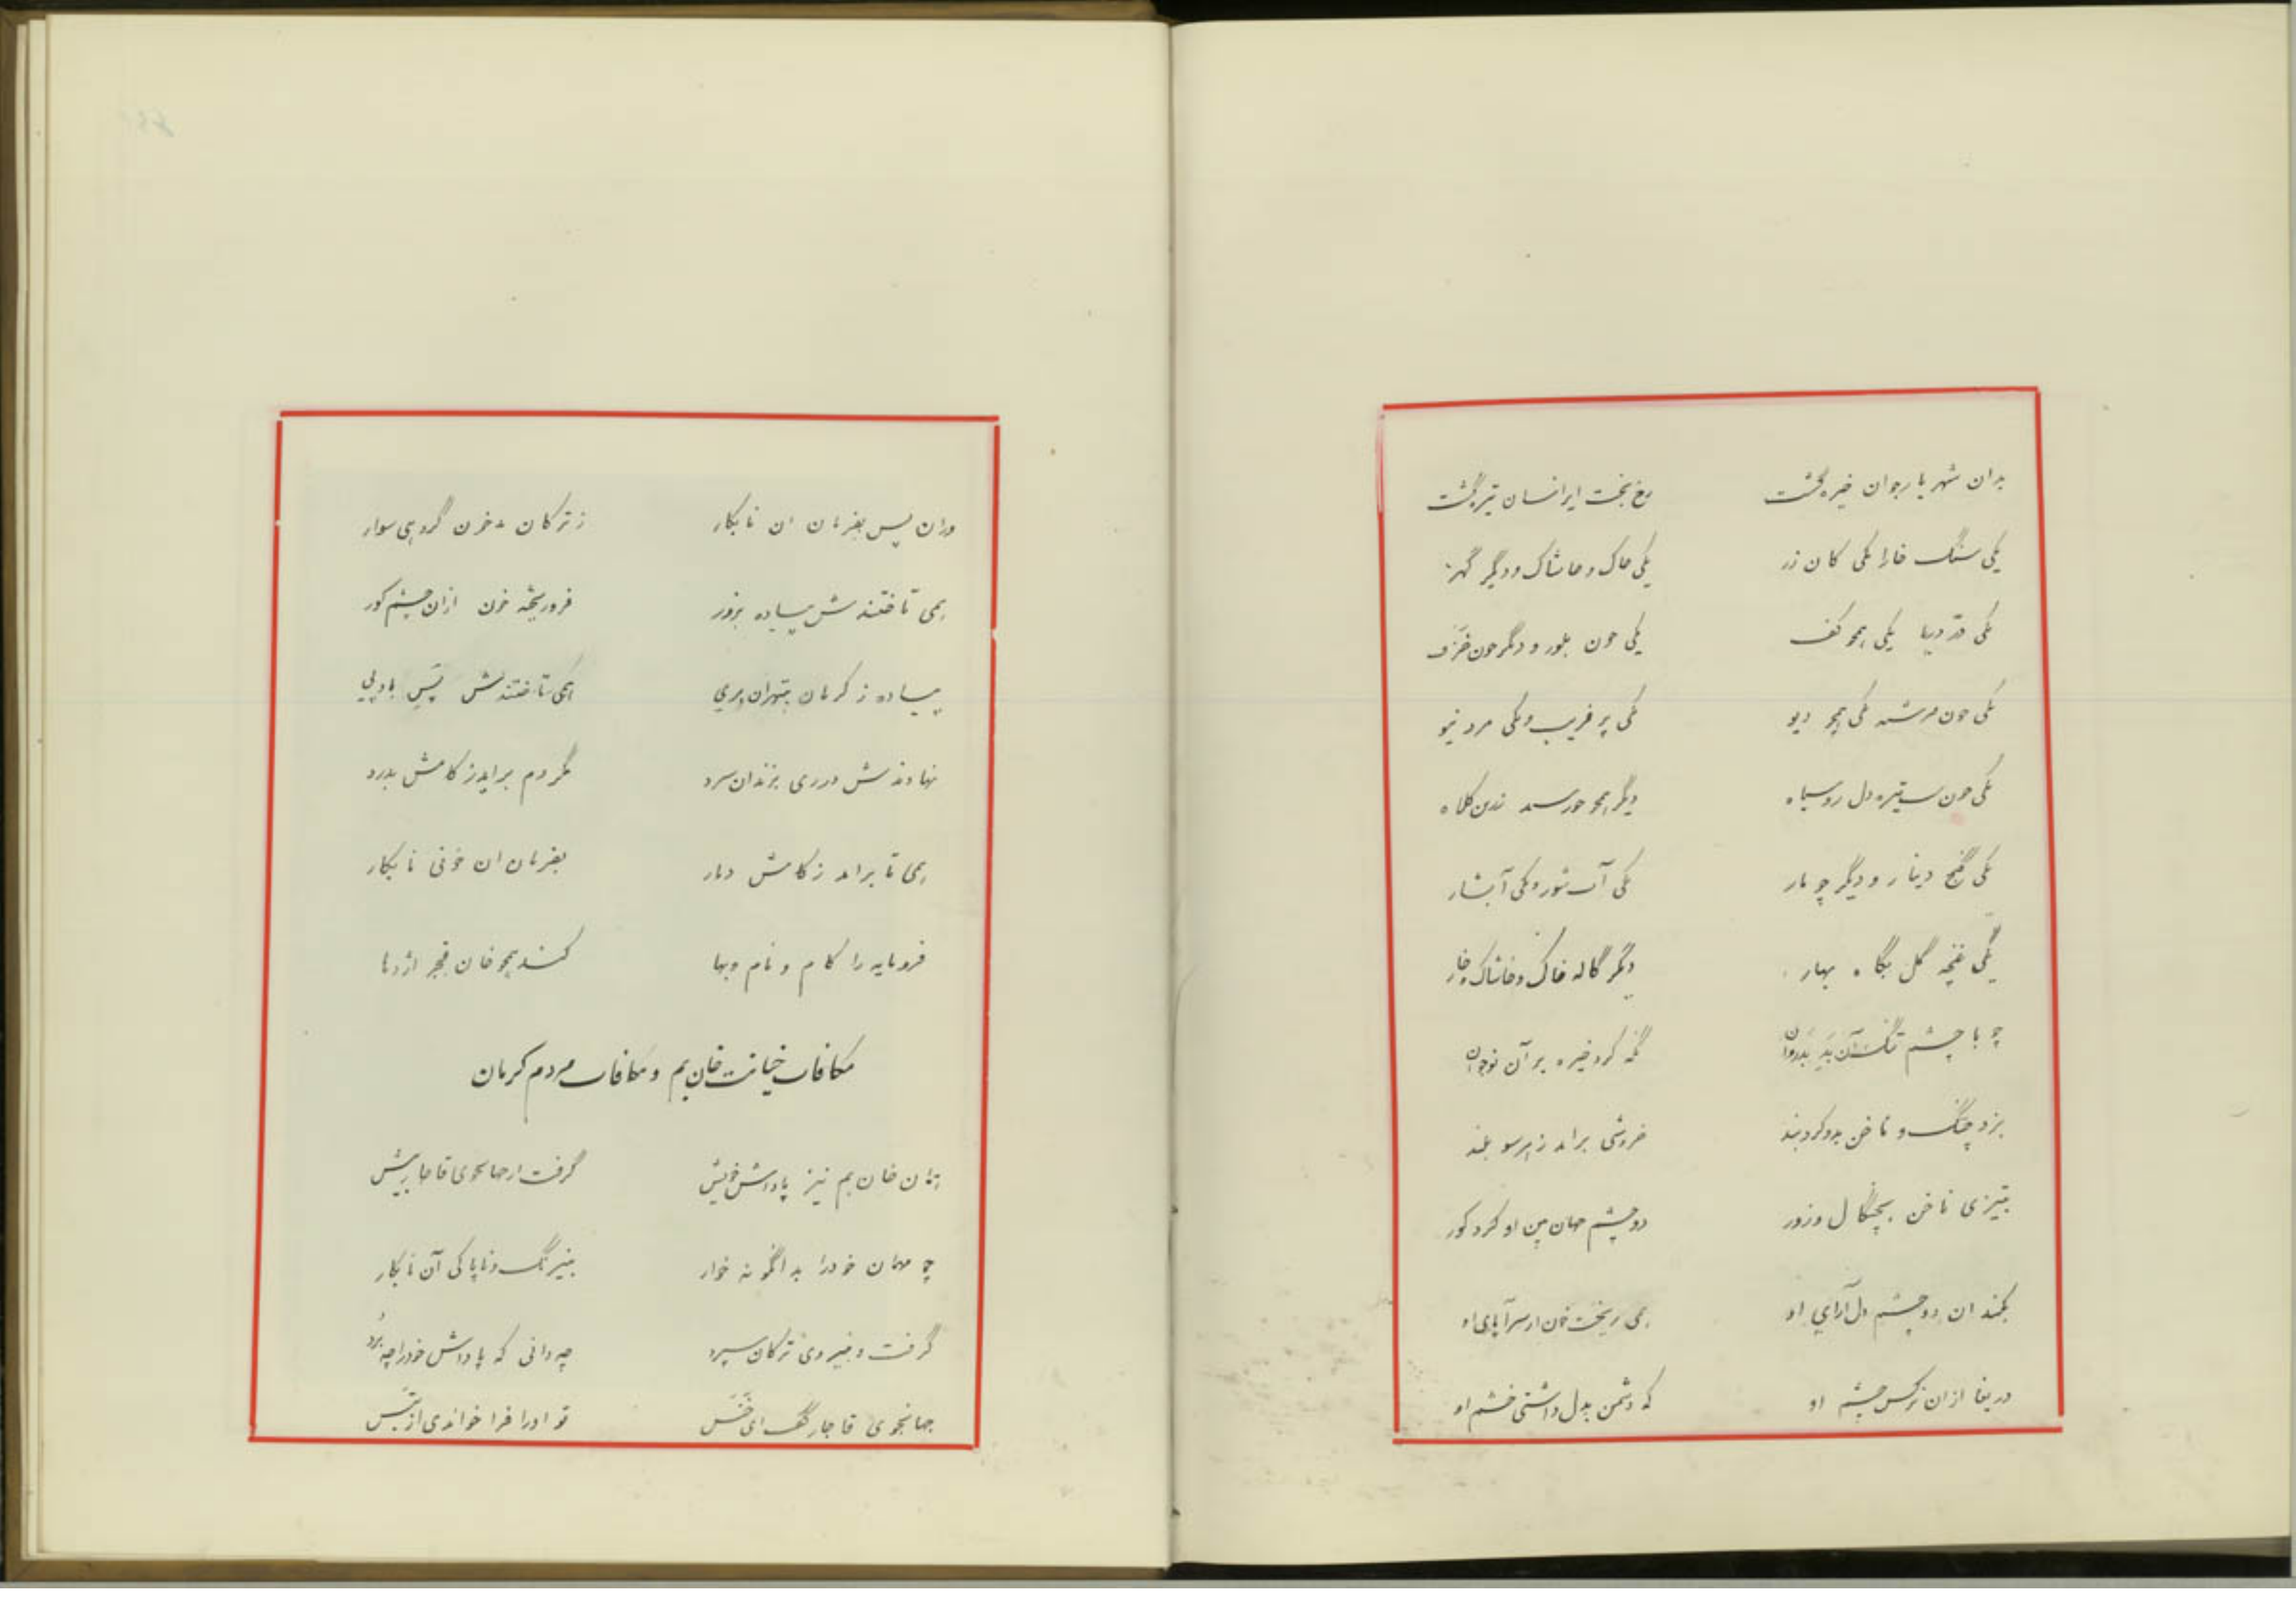 بدان شهریار جوان خیره گشت رخ بخت ایرانسان تیره گشت
یکی سنگ خارا یکی کان زر یکی خاک و خاشاک و دیگر گهر
یکی درّ دریا یکی همچو کف یکی چون بلور و دگر چون خزف
یکی چون فرشته یکی همچو دیو یکی پر فریب و یکی مرد نیو
یکی چون ستیزه دل روسیاه دیگر همچو خورشید زرین کلاه
یکی گنج دینار و دیگر چو مار یکی آب شور و یکی آبشار
یکی غنچه گل بگاه بهار دگر گاله خاک و خاشاک و خار
چو با چشم تنگ آن بَدِ بَدرَوان نگه کرد خیره بر آن نوجوان
بزد چنگ و ناخن بدو کرد بند خروشی برآمد ز هر سو بلند
بتیزی ناخن بچنگال و زور دو چشم جهان بین او کرد کور
بکند آن دو چشم دل آرای او همی ریخت خون از سراپای او
دریغا از آن نرگس چشم او که دشمن بدل داشتی خشم او
وزان پس بفرمان ان نابکار ز ترکان خون گروهی سوار
همی تاختندش پیاده بزور فرو ریخته خون ازان چشم کور
پیاده ز کرمان بتهران بری همی تاختندش پس بادپی
نهادندش در ری بزندان سرد مگر دم براید ز کامش بدرد
همی تا براید ز کامش دمار بفرمان ان خونی نابکار
فرومایه را کام و نام و بها کند همچو خان قجر اژدها
مکافات خیانت خان بم و مکافات مردم کرمان
همان خان بم نیز پاداش خویش گرفت از جهانجوی قاجار پیش
چو مهمان خود را بدانگونه خوار بنیرنگ و ناپاکی آن نابکار
گرفت و بنیروی ترکان سپرد چه دانی که پاداش خود را چه بُرد
جهانجوی قاجار گفت ای خَسَس تو او را فرا خواندی از